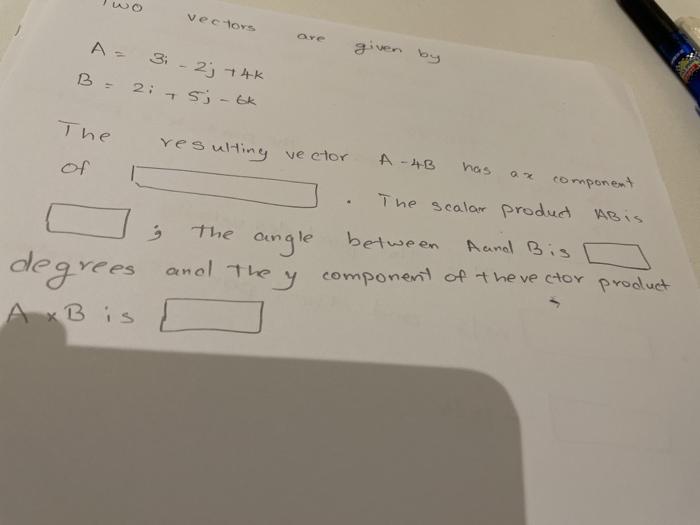 Two vectors are given by
A = 3i - 2j + 4k
B = 2i + 5j - 6k
The resulting vector A - 4B has a x component
of . The scalar product AB is
; the angle between A and B is
degrees and the y component of the vector product
A x B is